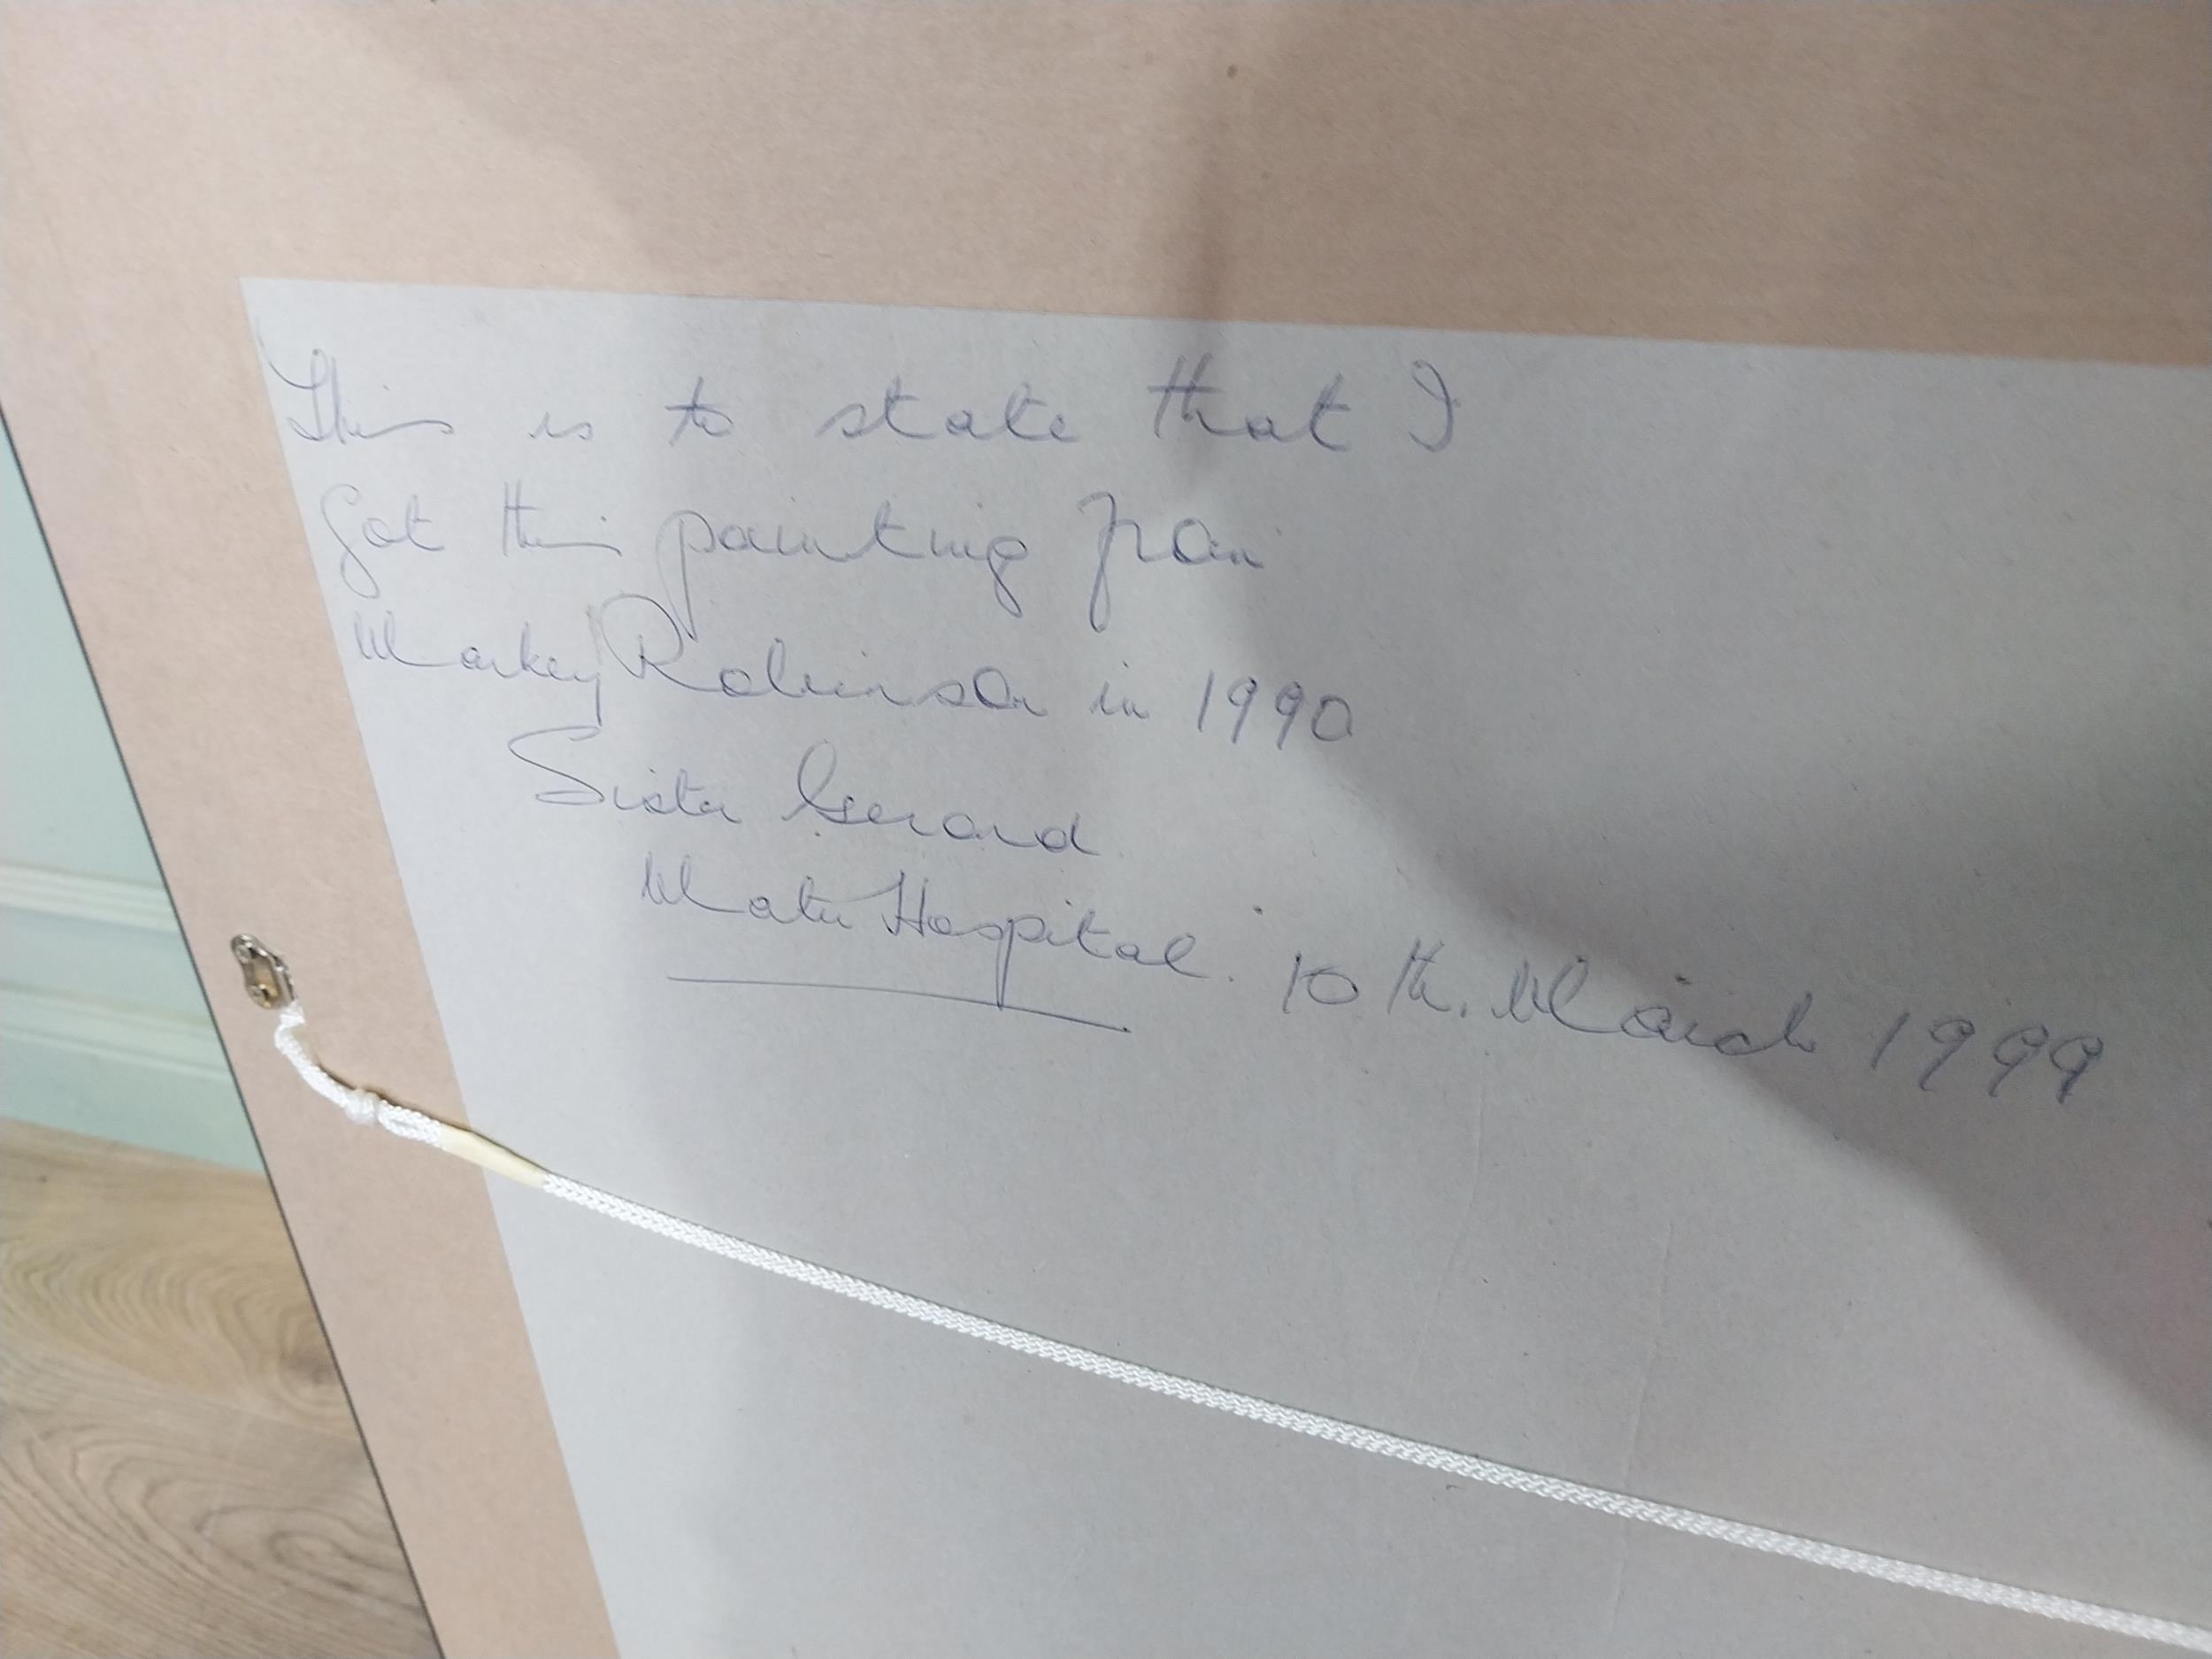 This is to state that I
Got this painting from
Markey Robinson in 1990
Sister Gerard
Mater Hospital. 10th. March 1999